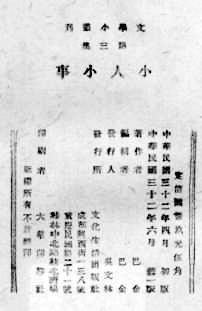 文學小叢刊
第三集
小人小事
國幣玖元伍角
中華民國三十二年四月 初版
中華民國三十二年六月 一版
著作者 巴金
編輯者 巴金
發行人 吳文林
發行所 文化生活出版社
成都陝西街一三八號
重慶民國路二十一號
桂林中北路
印刷者 大華印刷社
版權所有不許翻印